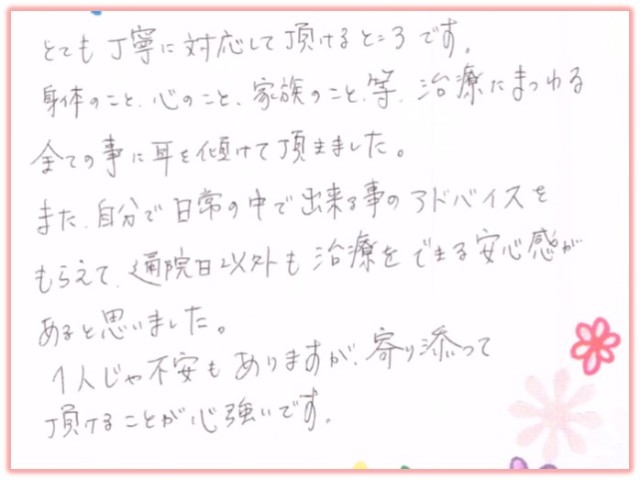 とても丁寧に対応して頂けるところです。
身体のこと、心のこと、家族のこと、等、治療にまつわる
全ての事に耳を傾けて頂きました。
また、自分で日常の中で出来る事のアドバイスを
もらえて、通院日以外も治療をできる安心感が
あると思いました。
1人じゃ不安もありますが、寄り添って
頂けることが心強いです。